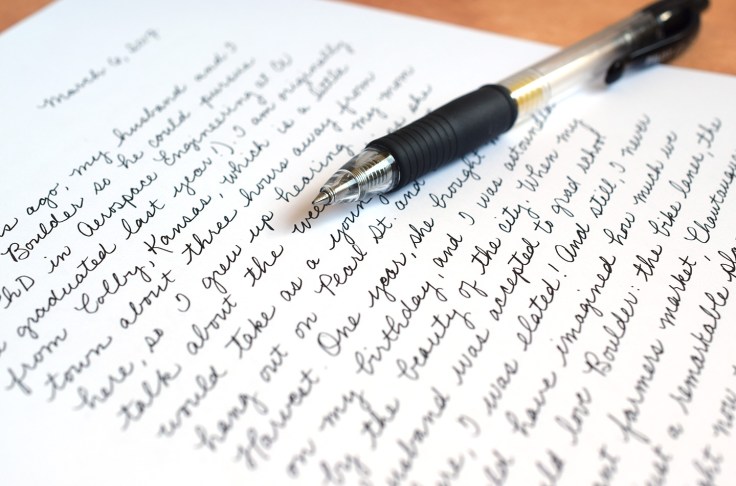 March 9,
s ago, my husband and I
Boulder so he could pursue
PhD in Aerospace Engineering at CU
graduated last year!) I am originally
from Colby, Kansas, which is a little
town about three hours away from
here, so I grew up hearing my mom
talk about the
would take as a young
hang out on Pearl St. and
Harvest. One year, she brought
on my birthday, and I was astounded
by the beauty of the city. When my
husband was accepted to grad school
here, I was elated! And still, I never
ld have imagined how much we
ld love Boulder: the bike lanes, the
nt farmers market, Chautauqu
just a remarkable pla
ght now